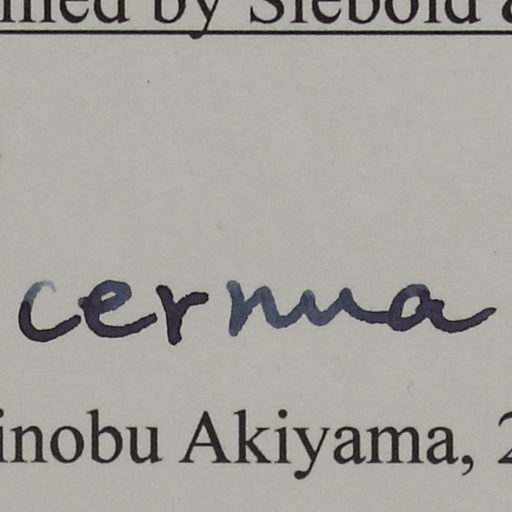 by Siebold
cernua
inobu Akiyama, 2